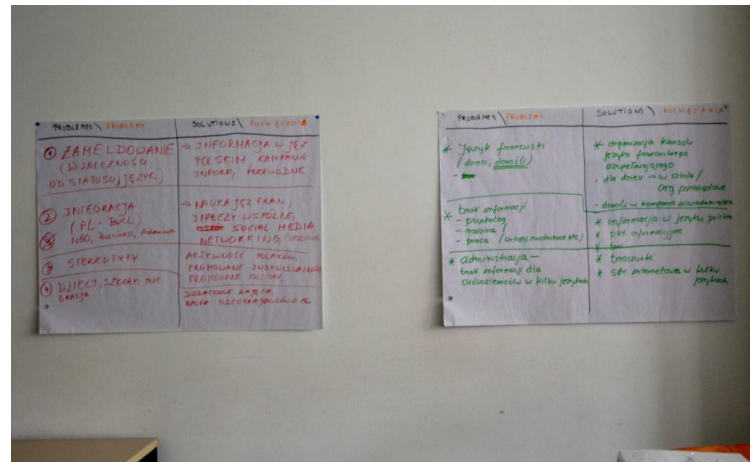 PROBLEMES \ PROBLEMY
SOLUTIONS \ ROZWIĄZANIA
① ZAMELDOWANIE
(W ZALEŻNOŚCI
OD STATUSU) JĘZYK)
→ INFORMACJA W JĘZ
POLSKIM, KAMPANIA
INFORM, PRZEWODNIK
② INTEGRACJA
(PL - BXL)
NGO, Business,
→ NAUKA JĘZ FRAN,
IMPREZY WSPÓLNE,
SOCIAL MEDIA,
NETWORKING
③ STEREOTYPY
AKTYWNOŚĆ POLAKÓW,
PROMOWANIE
PROMOWANIE KULTURY
④ DZIECI, SZKOŁY, INTE
GRACJA
DODATKOWE ZAJĘCIA,
NAUKA
PROBLEMES \ PROBLEMY
SOLUTIONS \ ROZWIĄZANIA
* Język francuski
/ dzieci, dorośli /
* organizacja kursów
języka francuskiego
uzupełniającego
- dla dzieci → w szkole /
org pozarządowe
- dorośli → kampania uświadamiająca
* brak informacji
- psycholog
- rodzina
- praca /
* informacja w języku polskim
* pkt. informacyjne
* administracja —
brak informacji dla
cudzoziemców w kilku językach
* broszurki
* str. internetowa w kilku
językach